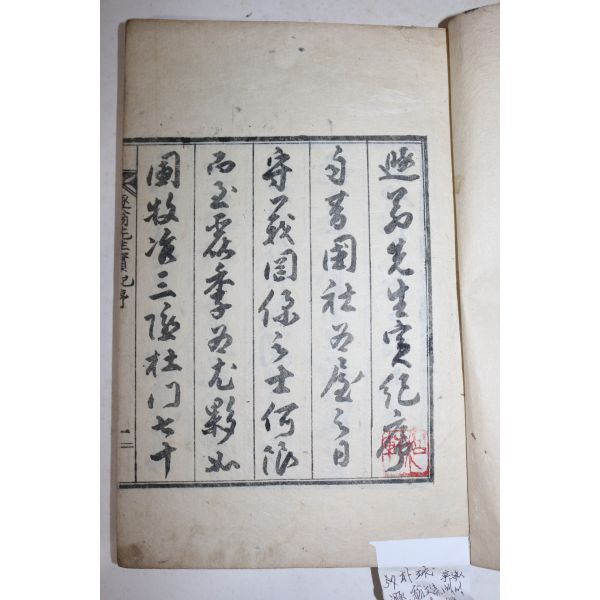 遯翁先生實紀序
自昔國社爲屋之日
守義罔僕之士何限
而至麗季爲尤夥如
圃牧冶三隱杜門七十
遯翁先生實紀序
一